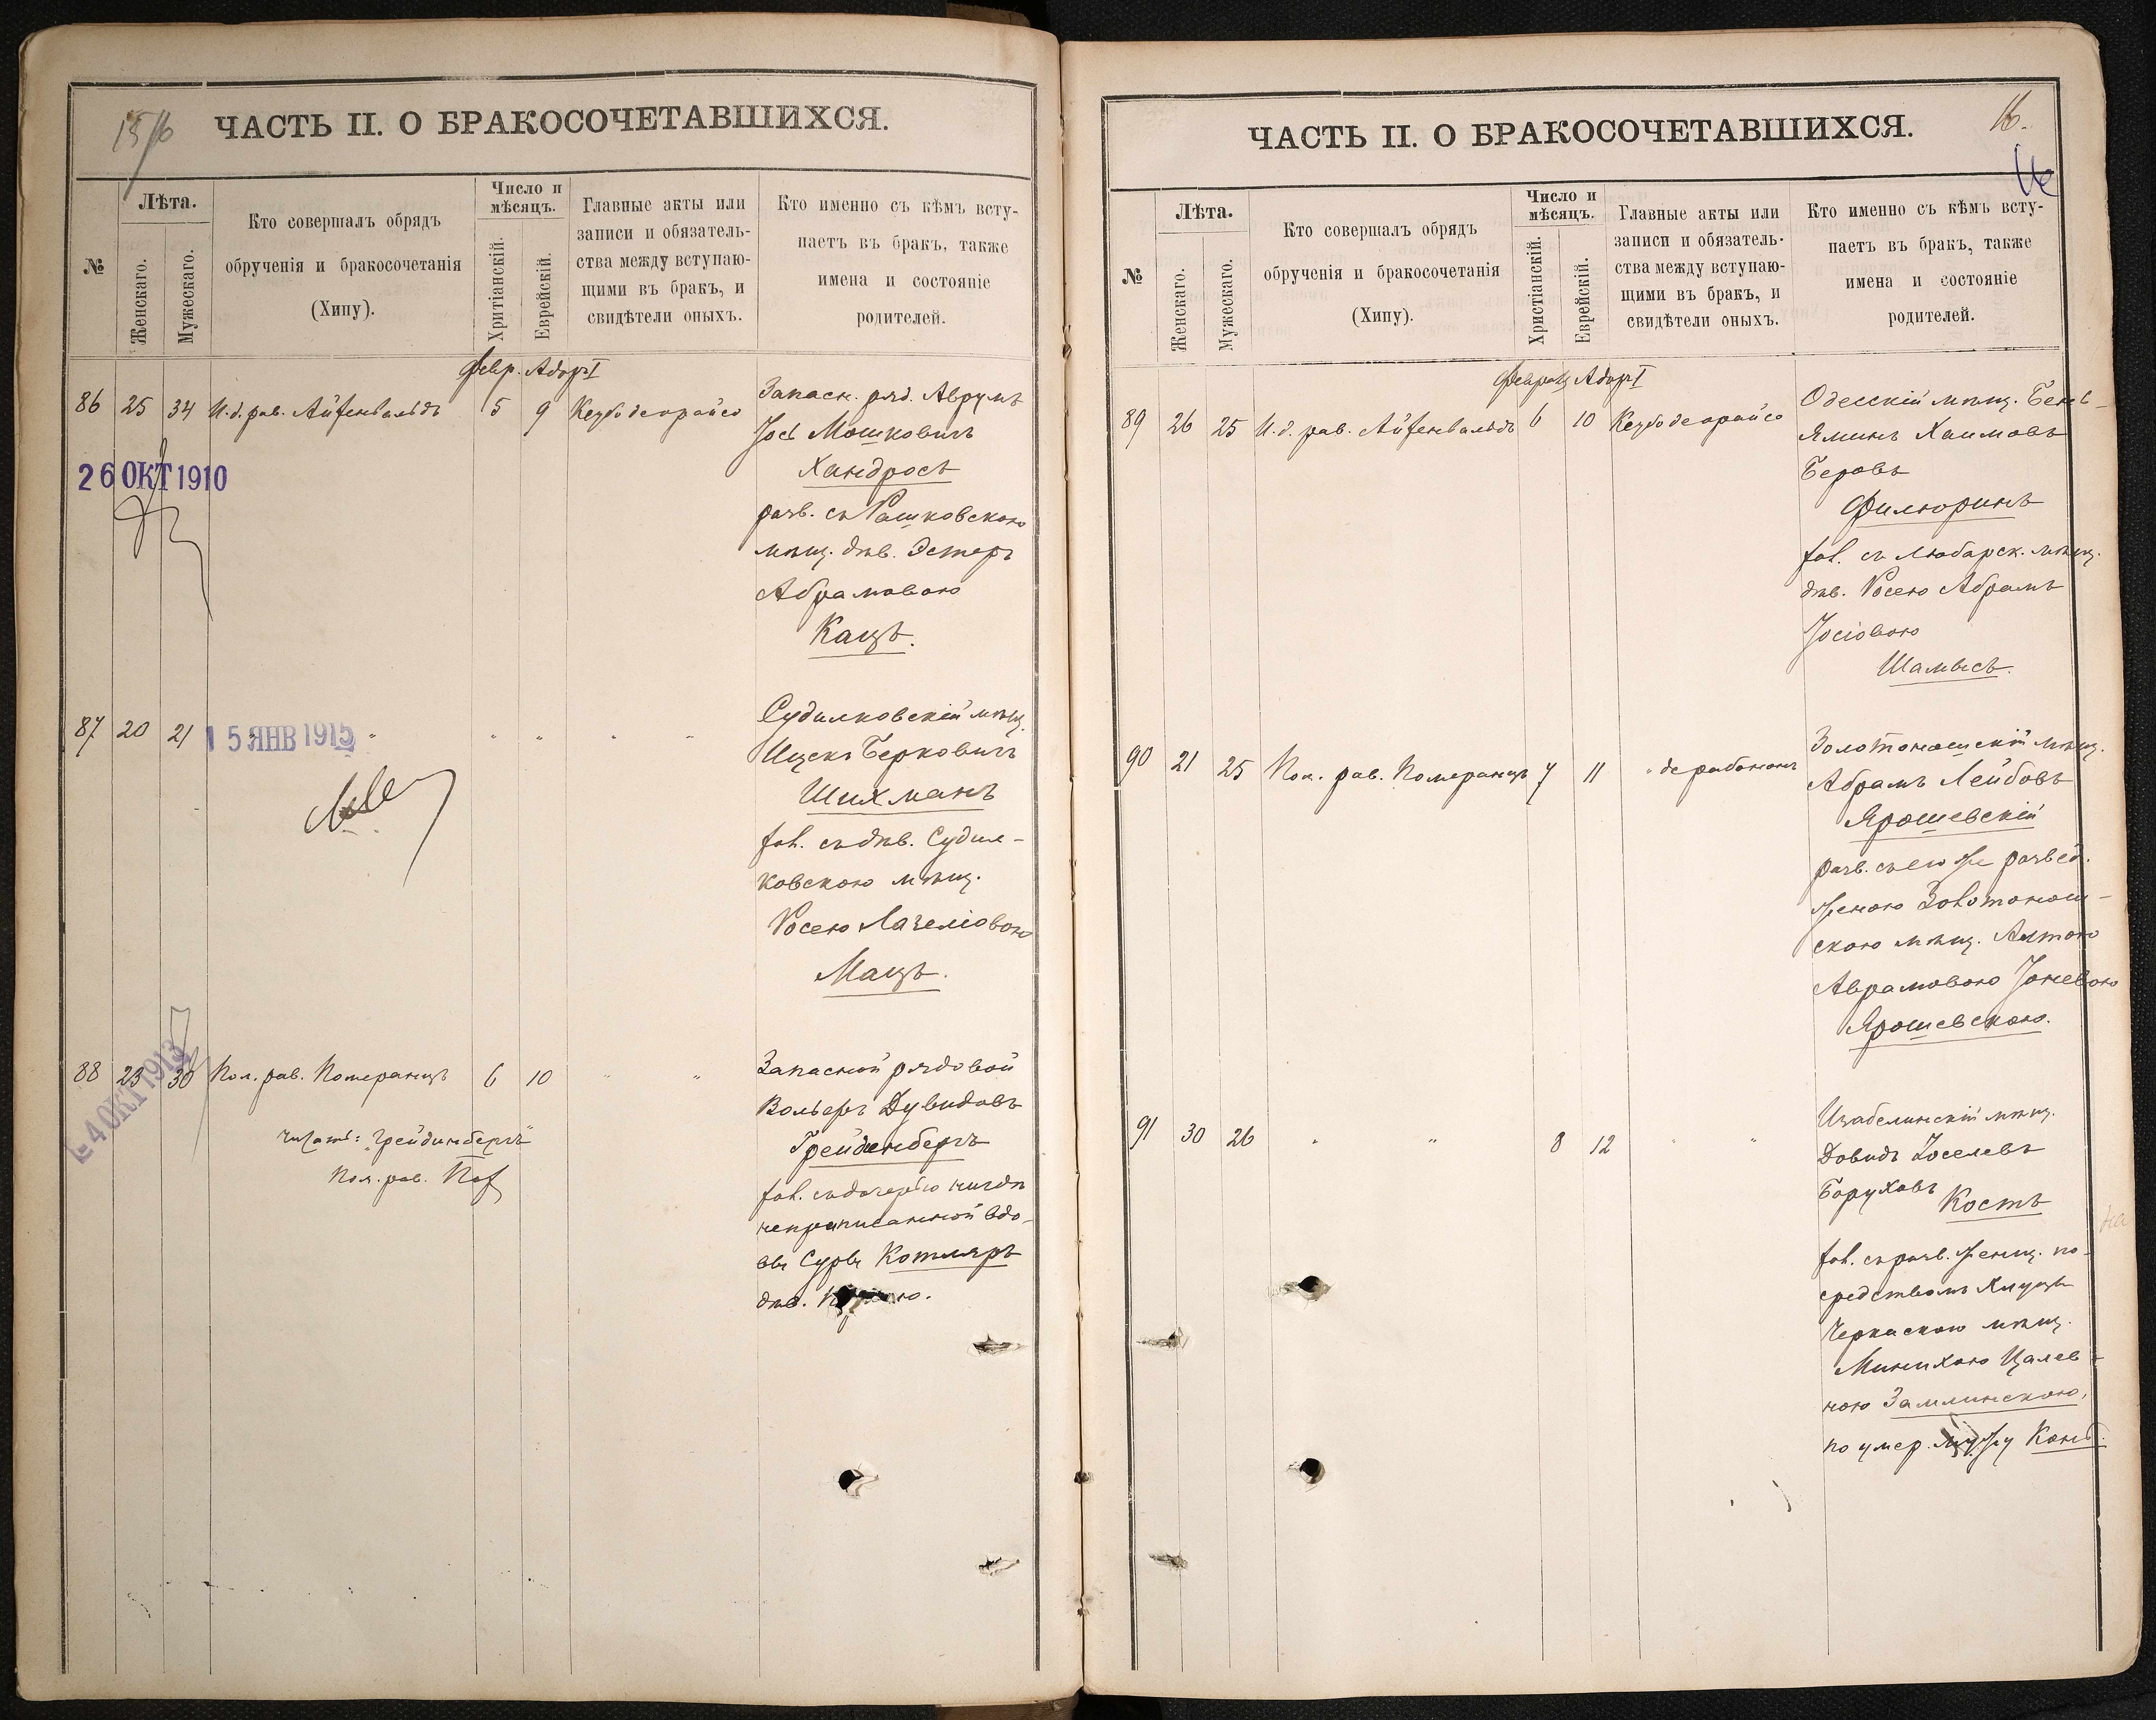 15/16
ЧАСТЬ II. О БРАКОСОЧЕТАВШИХСЯ.
№
Лѣта.
Женскаго.
Мужескаго.
Кто совершалъ обрядъ
обрученія и бракосочетанія
(Хипу).
Число и
мѣсяцъ.
Хритіанскій.
Еврейскій.
Главные акты или
записи и обязатель-
ства между вступаю-
щими въ бракъ, и
свидѣтели оныхъ.
Кто именно съ кѣмъ всту-
паетъ въ бракъ, также
имена и состояніе
родителей.
Февр. Адоръ I
86 25 34 И.д. рав. Айзенвальдъ 5 9 Кезубо деорайсо
Запасн. ряд. Аврумъ
Іось Мошковичъ
Хандросъ
разв. съ Рашковскою
мѣщ. дѣв. Эстеръ
Абрамовою
Кацъ.
26 ОКТ 1910
87 20 21 " " " " "
15 ЯНВ 1915
Судилковскій мѣщ.
Ицекъ Берковичъ
Шихманъ
хол. съ дѣв. Судил-
ковскою мѣщ.
Росею Лазеліовою
Мацъ.
88 23 30 Пом. рав. Померанцъ 6 10 " "
-4 ОКТ 1913
читать: "Грейдинбергъ"
Пом. рав.
Запасной рядовой
Вольфъ Дувидовъ
Грейденбергъ
хол. съ дочерью нигдѣ
неприписанной вдо-
вы Суры Котляръ
дѣв.
16.
16
ЧАСТЬ II. О БРАКОСОЧЕТАВШИХСЯ.
№
Лѣта.
Женскаго.
Мужескаго.
Кто совершалъ обрядъ
обрученія и бракосочетанія
(Хипу).
Число и
мѣсяцъ.
Христіанскій.
Еврейскій.
Главные акты или
записи и обязатель-
ства между вступаю-
щими въ бракъ, и
свидѣтели оныхъ.
Кто именно съ кѣмъ всту-
паетъ въ бракъ, также
имена и состояніе
родителей.
Февраль Адоръ I
89 26 25 И.д. рав. Айзенвальдъ 6 10 Кезубо деорайсо
Одесскій мѣщ. Бень-
яминъ Хаимовъ
Беровъ
Филюринъ
хол. съ Любарск. мѣщ.
дѣв. Росею Абрамъ
Іосіовою
Шамысъ.
90 21 25 Пом. рав. Померанцъ 7 11 " дерабононъ
Золотоношскій мѣщ.
Абрамъ Лейбовъ
Ярошевскій
разв. съ его же развед.
женою Золотонош-
скою мѣщ. Алтою
Аврамовою Іоневою
Ярошевскою.
91 30 26 " " 8 12 " "
Изабелинскій мѣщ.
Довидъ Іоселевъ
Боруховъ Костъ
хол. съ разв. женщ. по-
средствомъ Хлуцы
Черкаскою мѣщ.
Минихою Цалев-
ною Замлинскою,
по умер. мужу